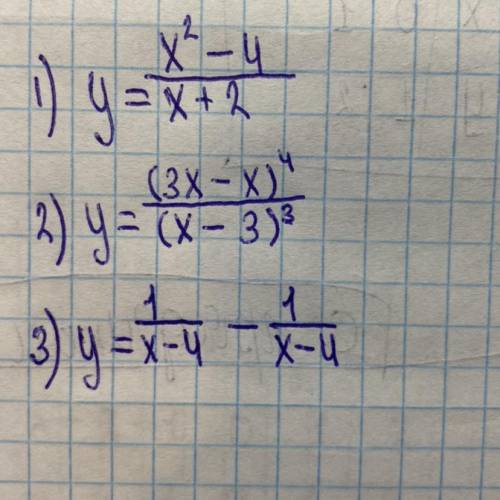 1) y = (x² - 4)/(x + 2)
2) y = (3x - x)⁴/(x - 3)³
3) y = 1/(x - 4) - 1/(x - 4)